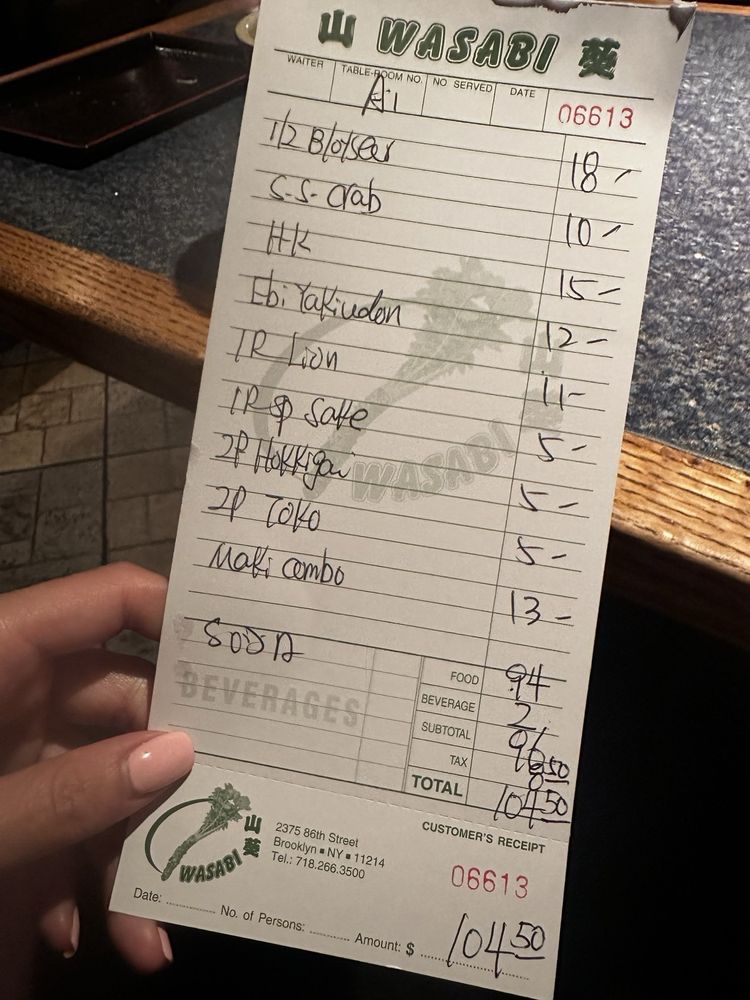 山 WASABI 葵
WAITER TABLE-ROOM NO. NO SERVED DATE
A11 06613
1/2 18-
S.S. Crab 10-
HK 15-
Ebi Yakiudon 12-
1R Lion 11-
1P sp Sake 5-
2P Hokkigai 5-
2P Toko 5-
Maki combo 13-
WASABI 山葵
SODA
BEVERAGES
FOOD 94
BEVERAGE 2
SUBTOTAL 96
TAX 8 50
TOTAL 104 50
山葵
WASABI
2375 86th Street
Brooklyn ■ NY ■ 11214
Tel.: 718.266.3500
CUSTOMER'S RECEIPT
06613
Date: No. of Persons: Amount: $ 104 50